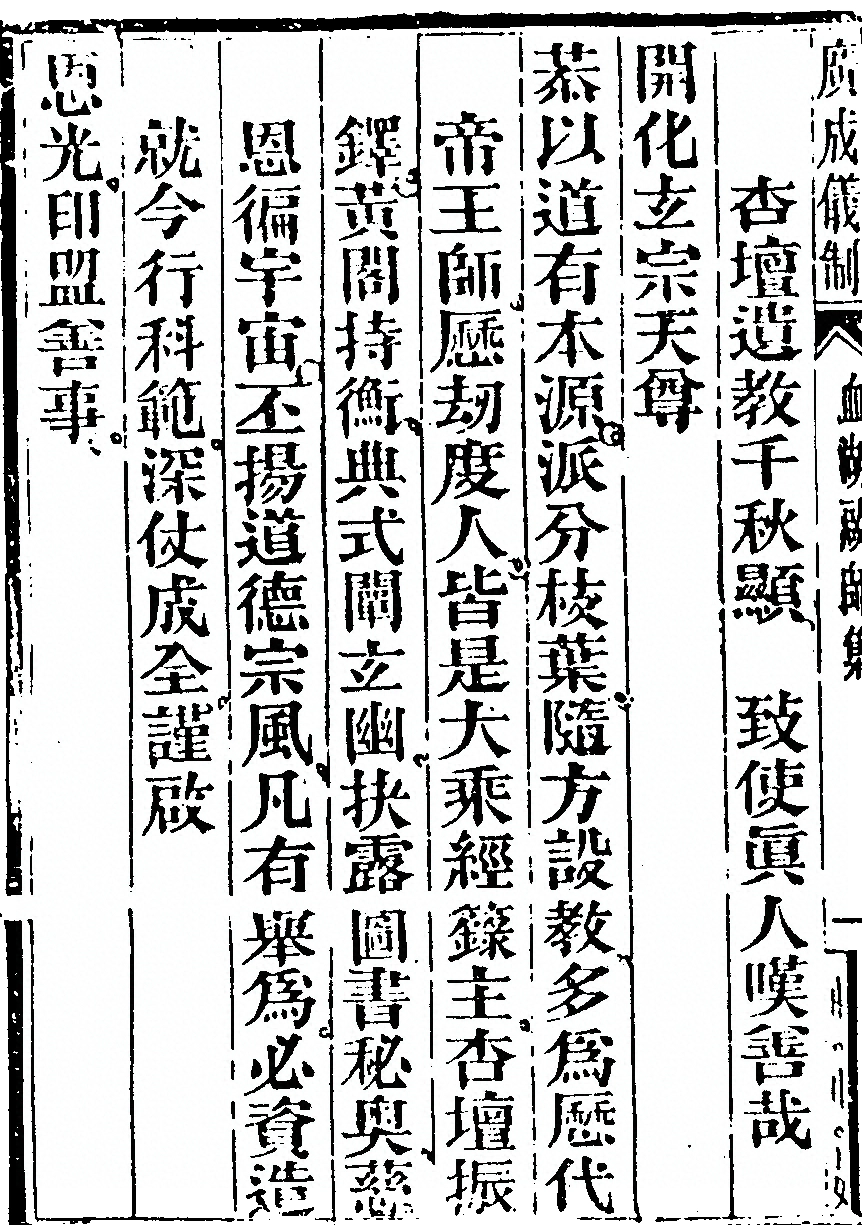 廣成儀制 血湖啟師集 一
杏壇遺教千秋顯　致使眞人嘆善哉
開化玄宗天尊
恭以道有本源派分枝葉隨方設教多爲歷代
帝王師歷刼度人皆是大乘經籙主杏壇振
鐸黄閣持衡典式闡玄幽抉露圖書秘奥慈
恩徧宇宙丕揚道德宗風凡有舉爲必資造
就今行科範深仗成全謹啟
恩光印盟善事